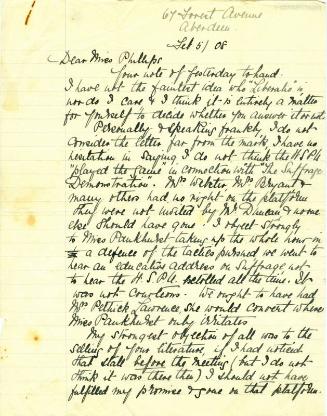 67 Forest Avenue
Aberdeen
Feb 5/08
Dear Miss Phillips
Your note of yesterday to hand.
I have not the faintest idea who "Liberalis" is
nor do I care & I think it is entirely a matter
for yourself to decide whether you answer it or not
Personally & speaking frankly I do not
consider the letter far from the mark, I have no
hesitation in saying I do not think the W.S.P.U.
"played the game" in connection with "The Suffrage
Demonstration. Mrs Webster Mrs Bryant &
many others had no right on the platform
They were not invited by Mr Duncan & none
else should have gone. I object strongly
to Miss Pankhurst taking up the whole hour in
a defence of the tactics pursued we went to
hear an educative address on Suffrage not
to hear the W.S.P.U. extolled all the time. It
was not courteous. We ought to have had
Mrs Pethick Lawrence, she would convert where
Miss Pankhurst only irritates
My strongest objection of all was to the
selling of your literature, if I had noticed
that stall before the meeting (but I do not
think it was there then) I should not have
fulfilled my promise & gone on that platform.